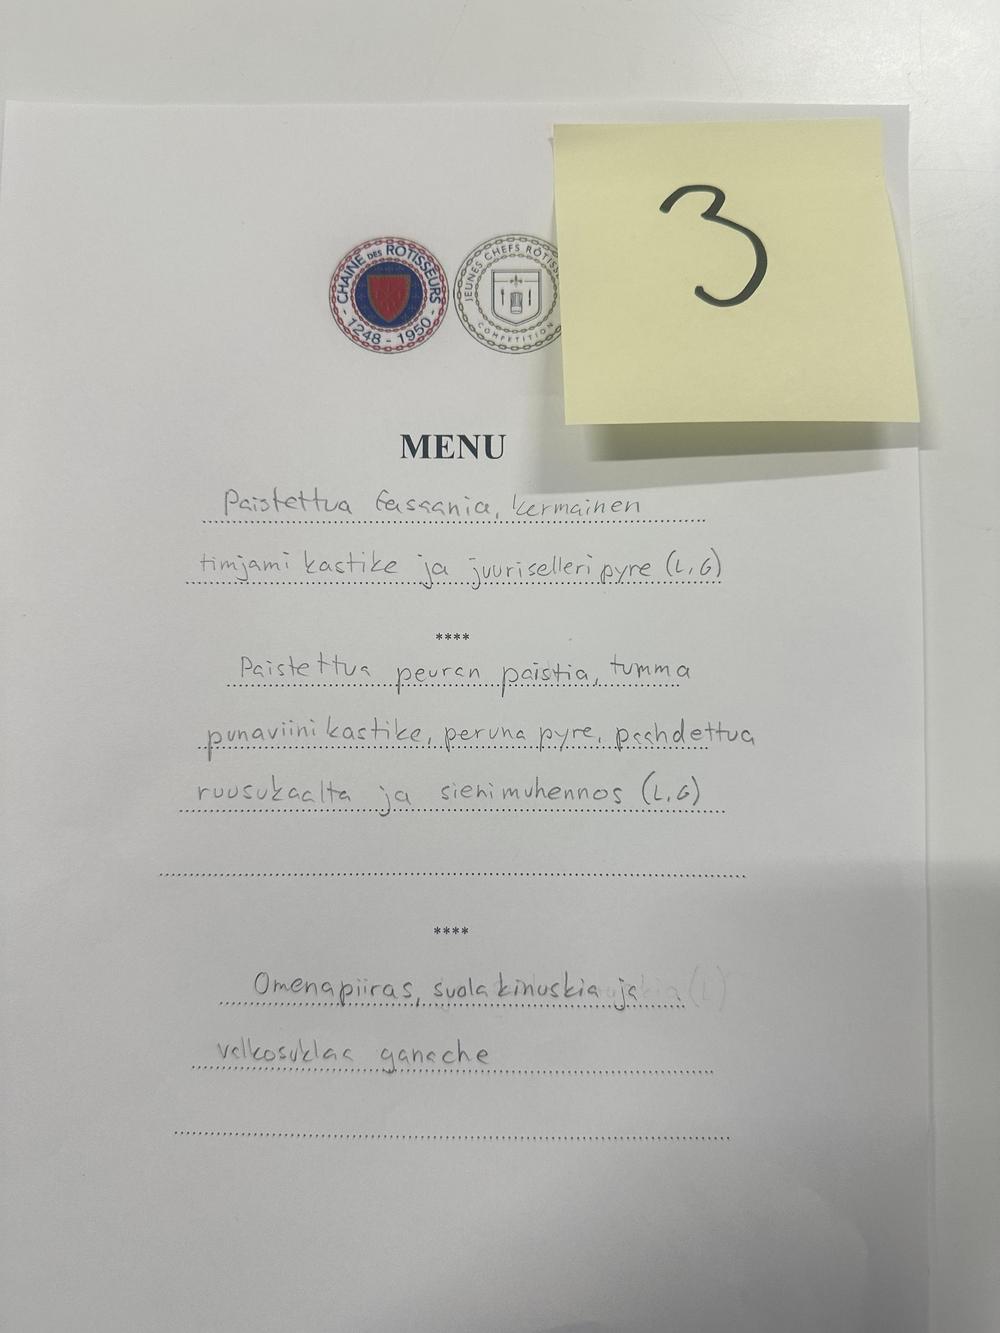 3
CHAINE DES ROTISSEURS
1248 - 1950
JEUNES CHEFS ROTISSE
COMPETITION
MENU
Paistettua fasaania, kermainen
timjami kastike ja juuriselleri pyre (L, G)
****
Paistettua peuran paistia, tumma
punaviini kastike, peruna pyre, paahdettua
ruusukaalta ja sienimuhennos (L, G)
****
Omenapiiras, suola kinuskia ja (L)
valkosuklaa ganache